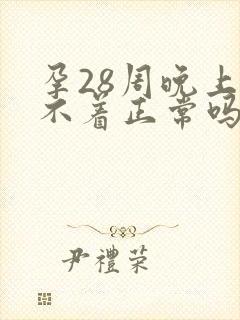 孕28周晚上
不着正常吗
尹禮荣